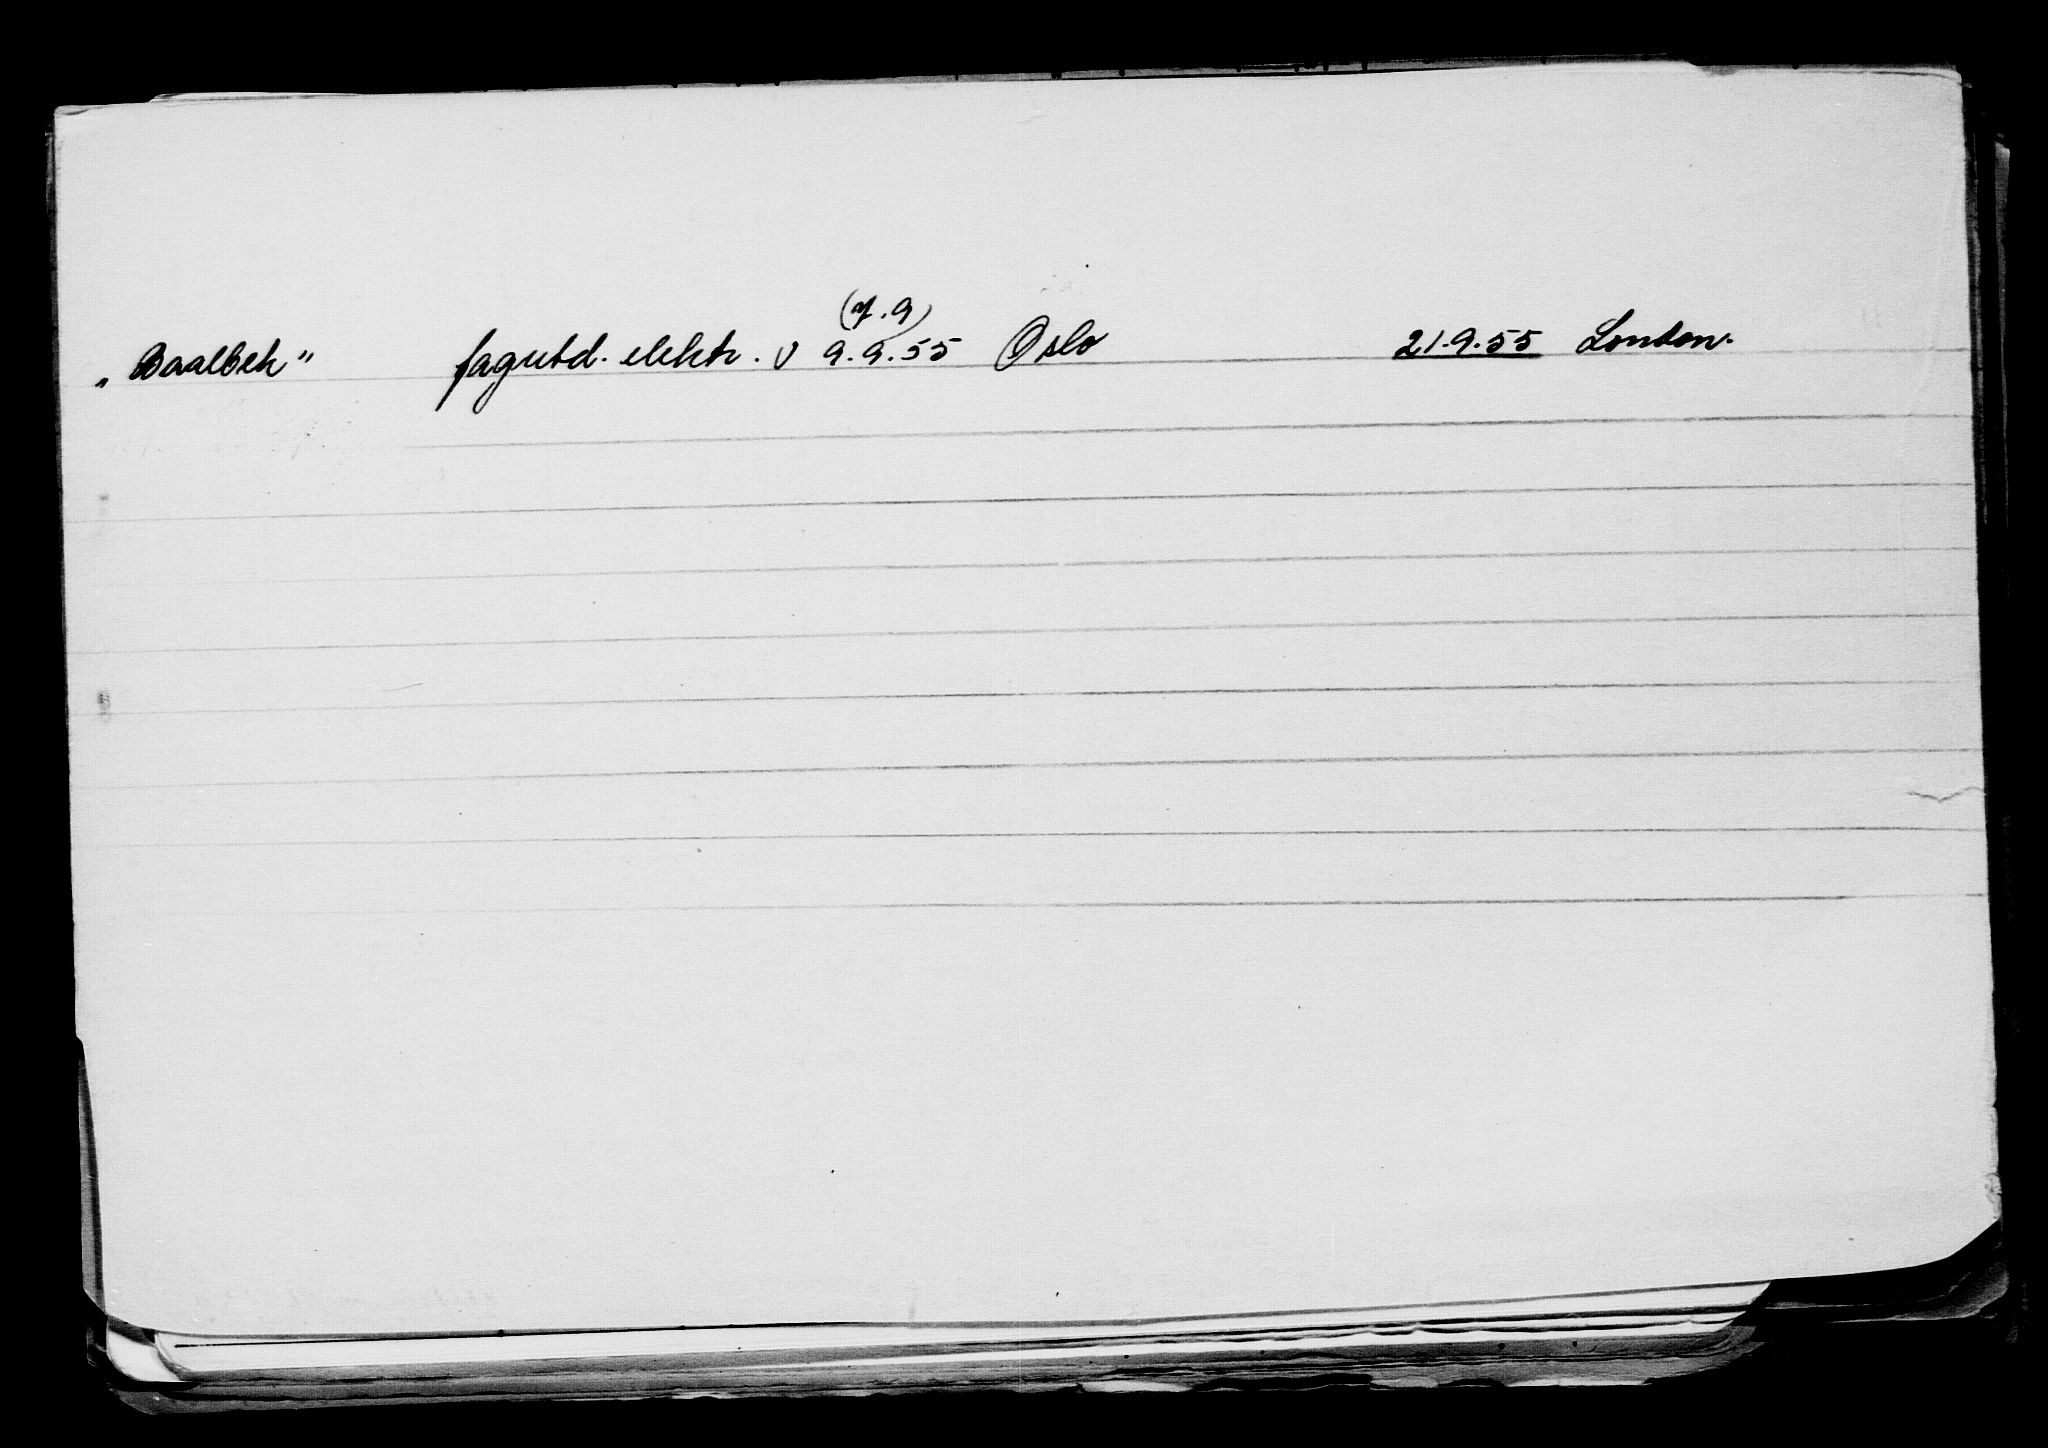 (7.9)
„Baalbek” fagutd. elektr. v 9.9.55 Oslo 21.9.55 London.